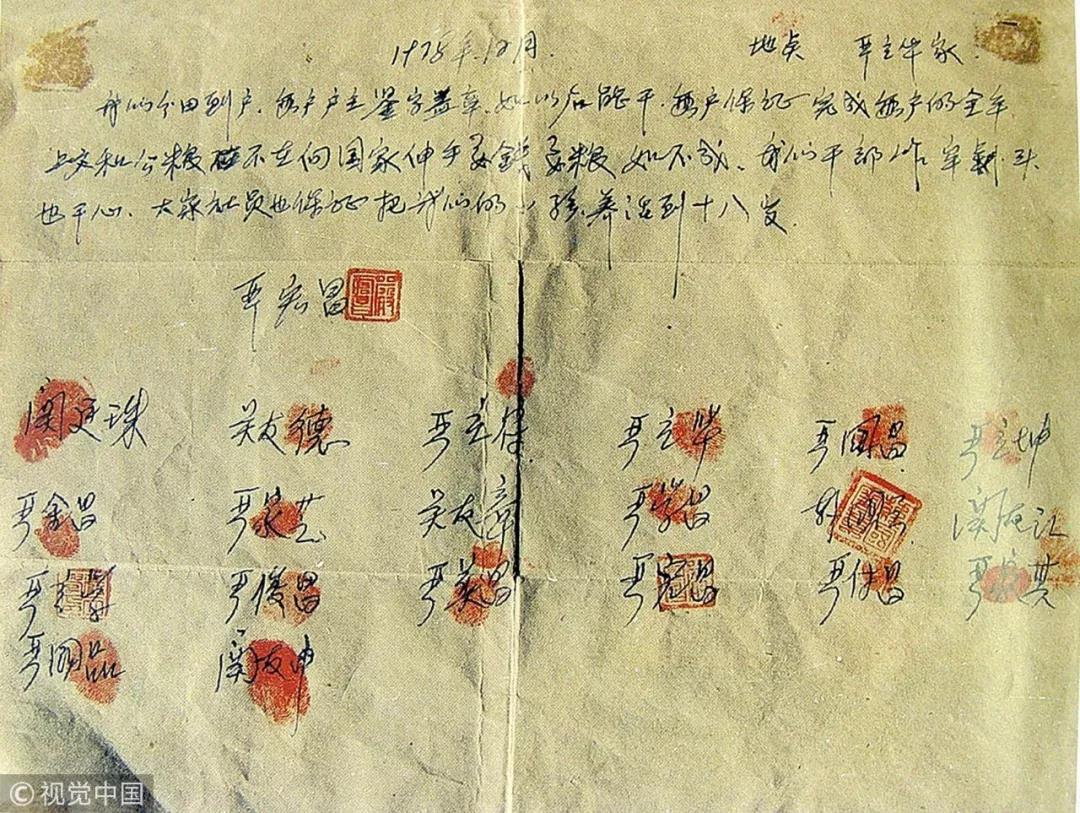 1978年12月. 地点 严立华家.
我们分田到户.每户户主签字盖章.如以后能干.每户保证完成每户的全年
上交和公粮 不在向国家伸手要钱要粮 如不成.我们干部作牢刹头
也干心.大家社员也保证把我们的小孩养活到十八岁.
严宏昌
关廷珠 关友德 严立符 严立华 严国昌 严立坤
严金昌 严家芝 关友章 严学昌 韩国云 关友江
严立学 严俊昌 严美昌 严宏昌 严付昌 严家其
严国品 关友申
©视觉中国